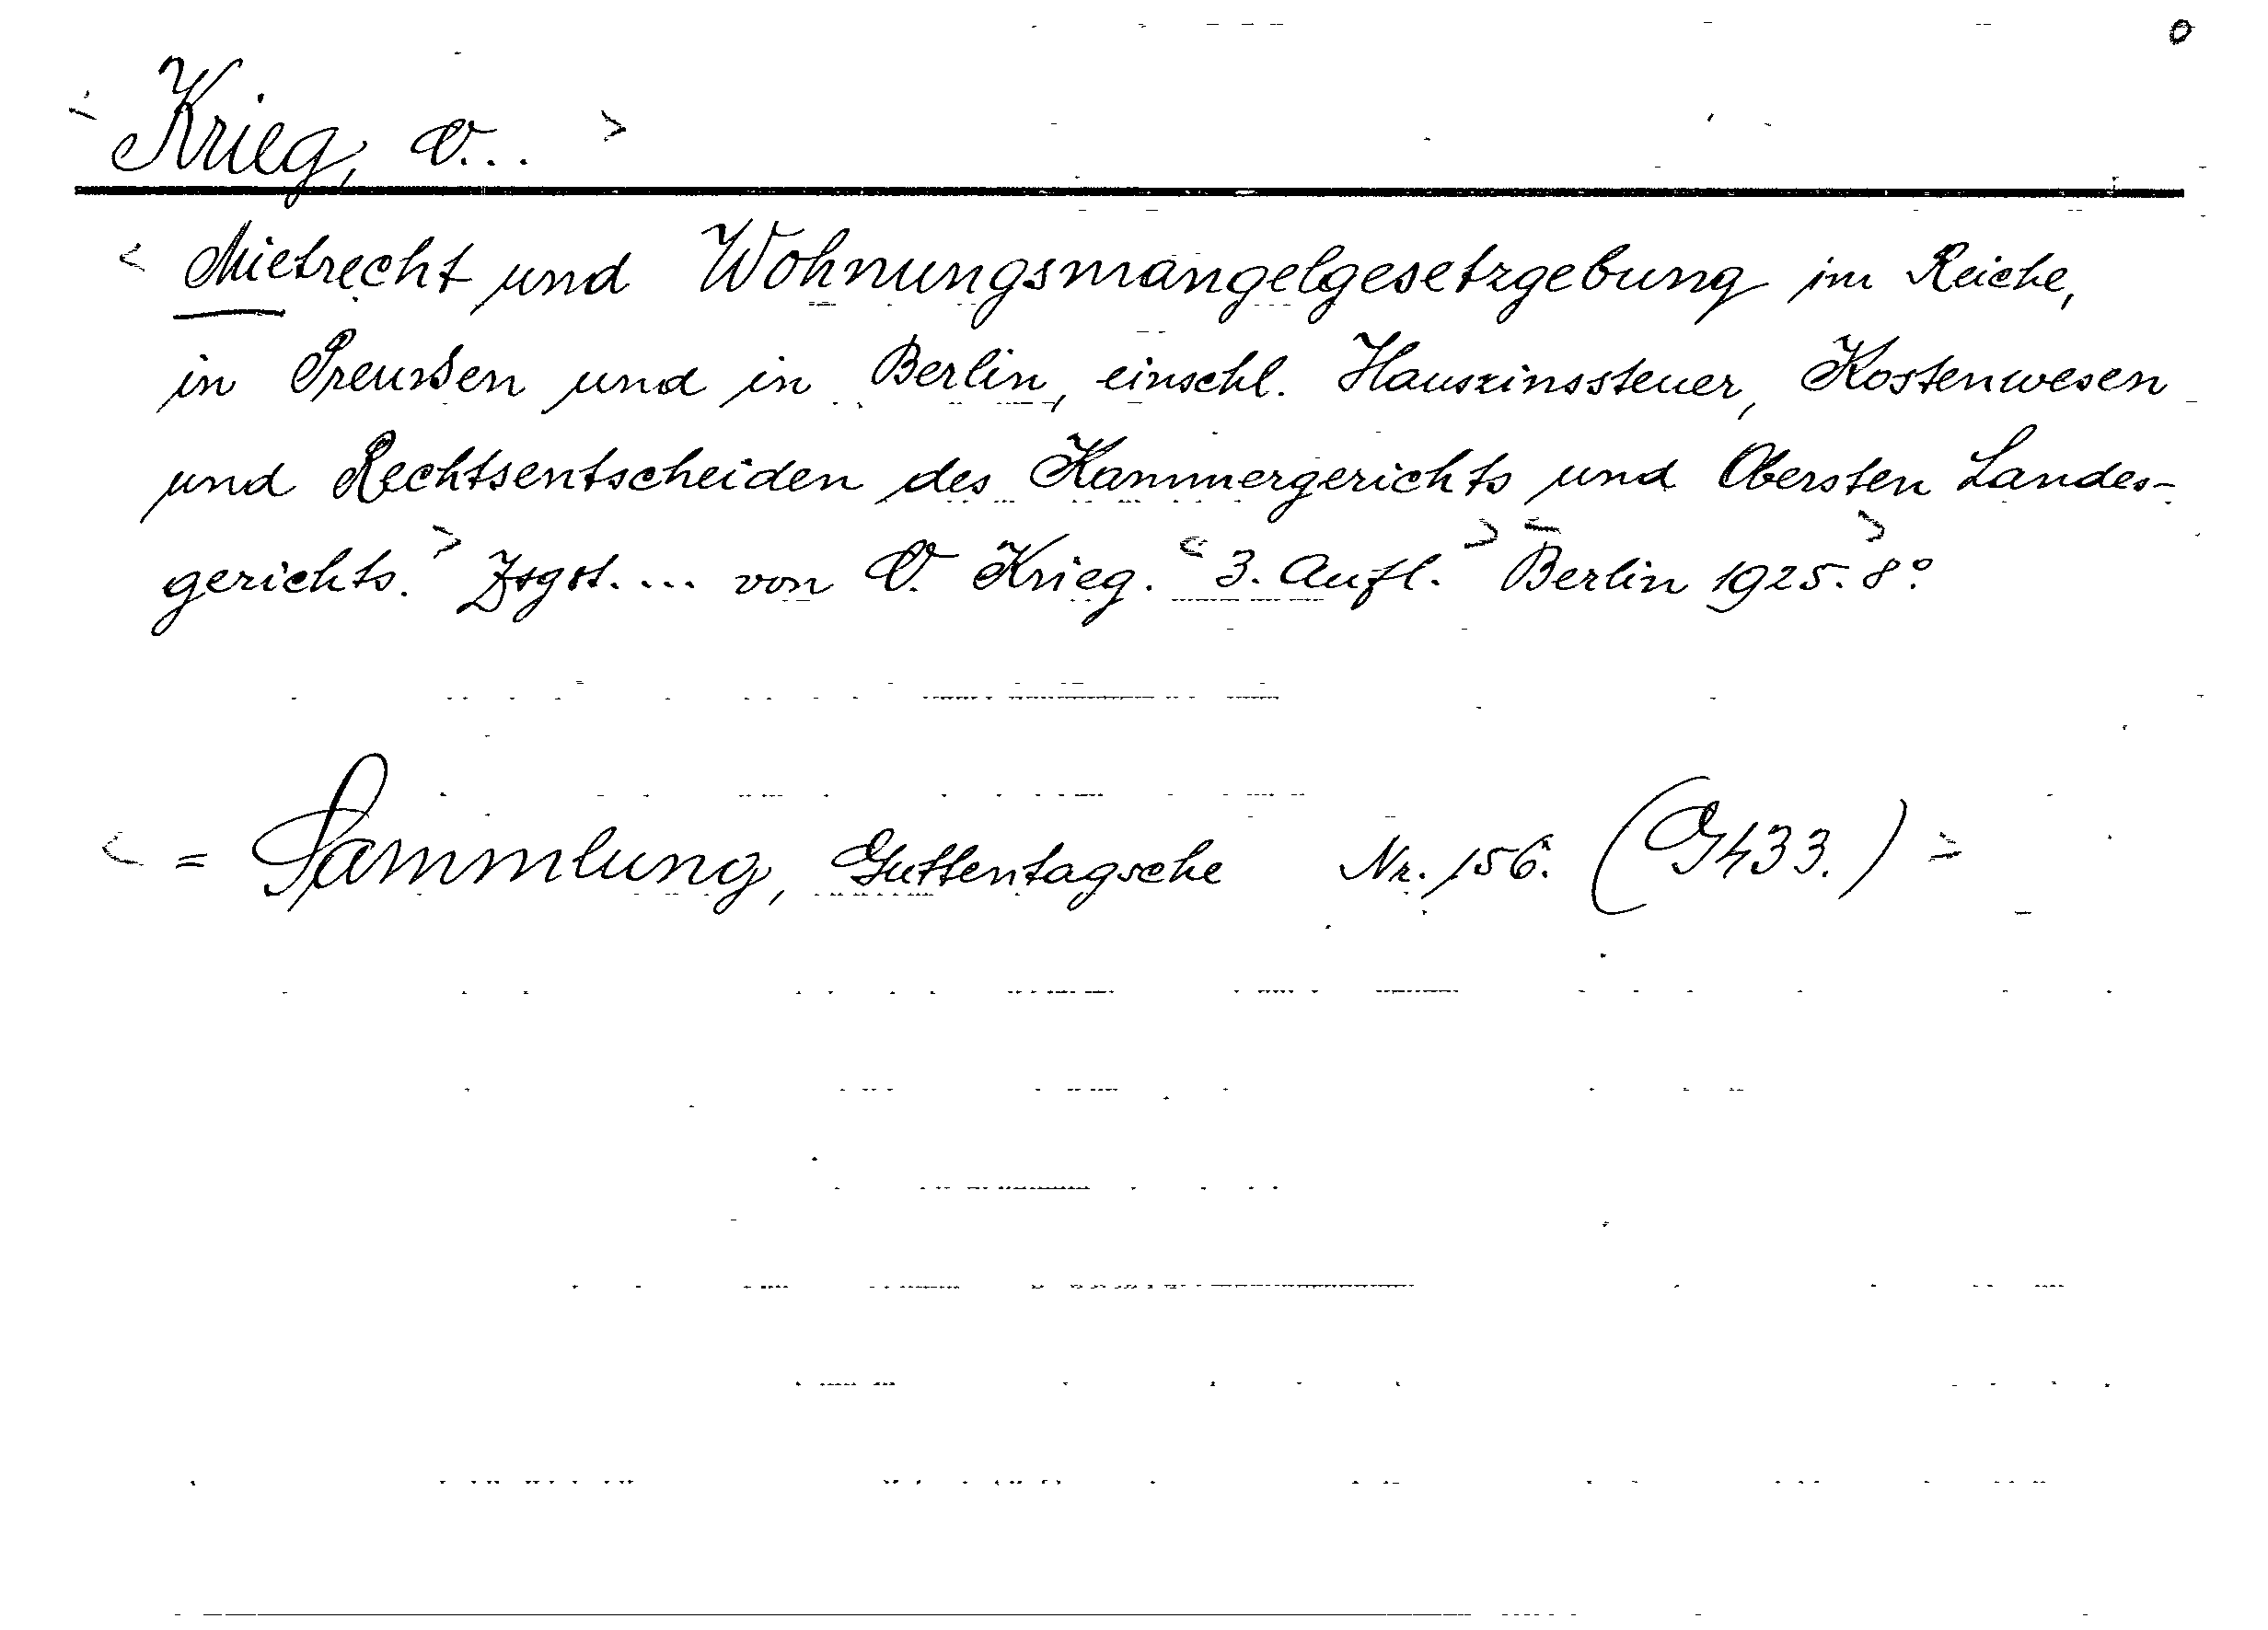 o
< Krieg, V... >
< Mietrecht und Wohnungsmangelgesetzgebung im Reiche,
in Preußen und in Berlin, einschl. Hauszinssteuer, Kostenwesen
und Rechtsentscheiden des Kammergerichts und Obersten Landes-
gerichts. > Zsgst. ... von V. Krieg. < 3. Aufl. > < Berlin 1925. > 8°.
< = Sammlung, Guttentagsche Nr. 156. (G433.) >